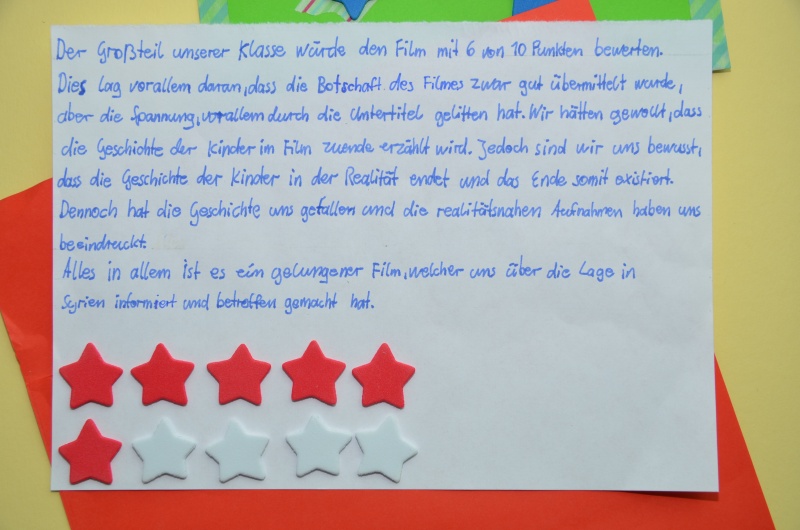 Der Großteil unserer Klasse würde den Film mit 6 von 10 Punkten bewerten.
Dies lag vorallem daran, dass die Botschaft des Filmes zwar gut übermittelt wurde,
aber die Spannung, vorallem durch die Untertitel gelitten hat. Wir hätten gewollt, dass
die Geschichte der Kinder im Film zuende erzählt wird. Jedoch sind wir uns bewusst,
dass die Geschichte der Kinder in der Realität endet und das Ende somit existiert.
Dennoch hat die Geschichte uns gefallen und die realitätsnahen Aufnahmen haben uns
beeindruckt.
Alles in allem ist es ein gelungener Film, welcher uns über die Lage in
Syrien informiert und betroffen gemacht hat.